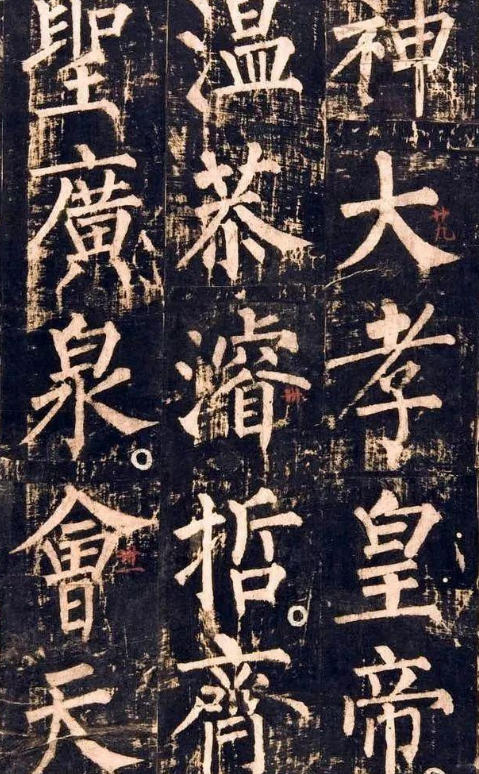 神大孝皇帝。
温恭濬哲。齊
聖廣泉。會天
廿九
卅
卅一